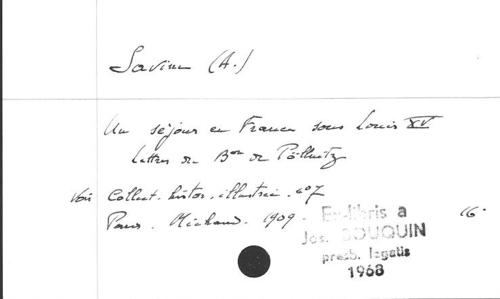 Savine (A.)
Un séjour en France sous Louis XV
Lettres du Bon de Pöllnitz
Voir Collect. histor. illustrée. n°7
Paris. Michaud. 1909. 16°
Ex-libris a
Jos. BOUQUIN
presb. legatis
1968